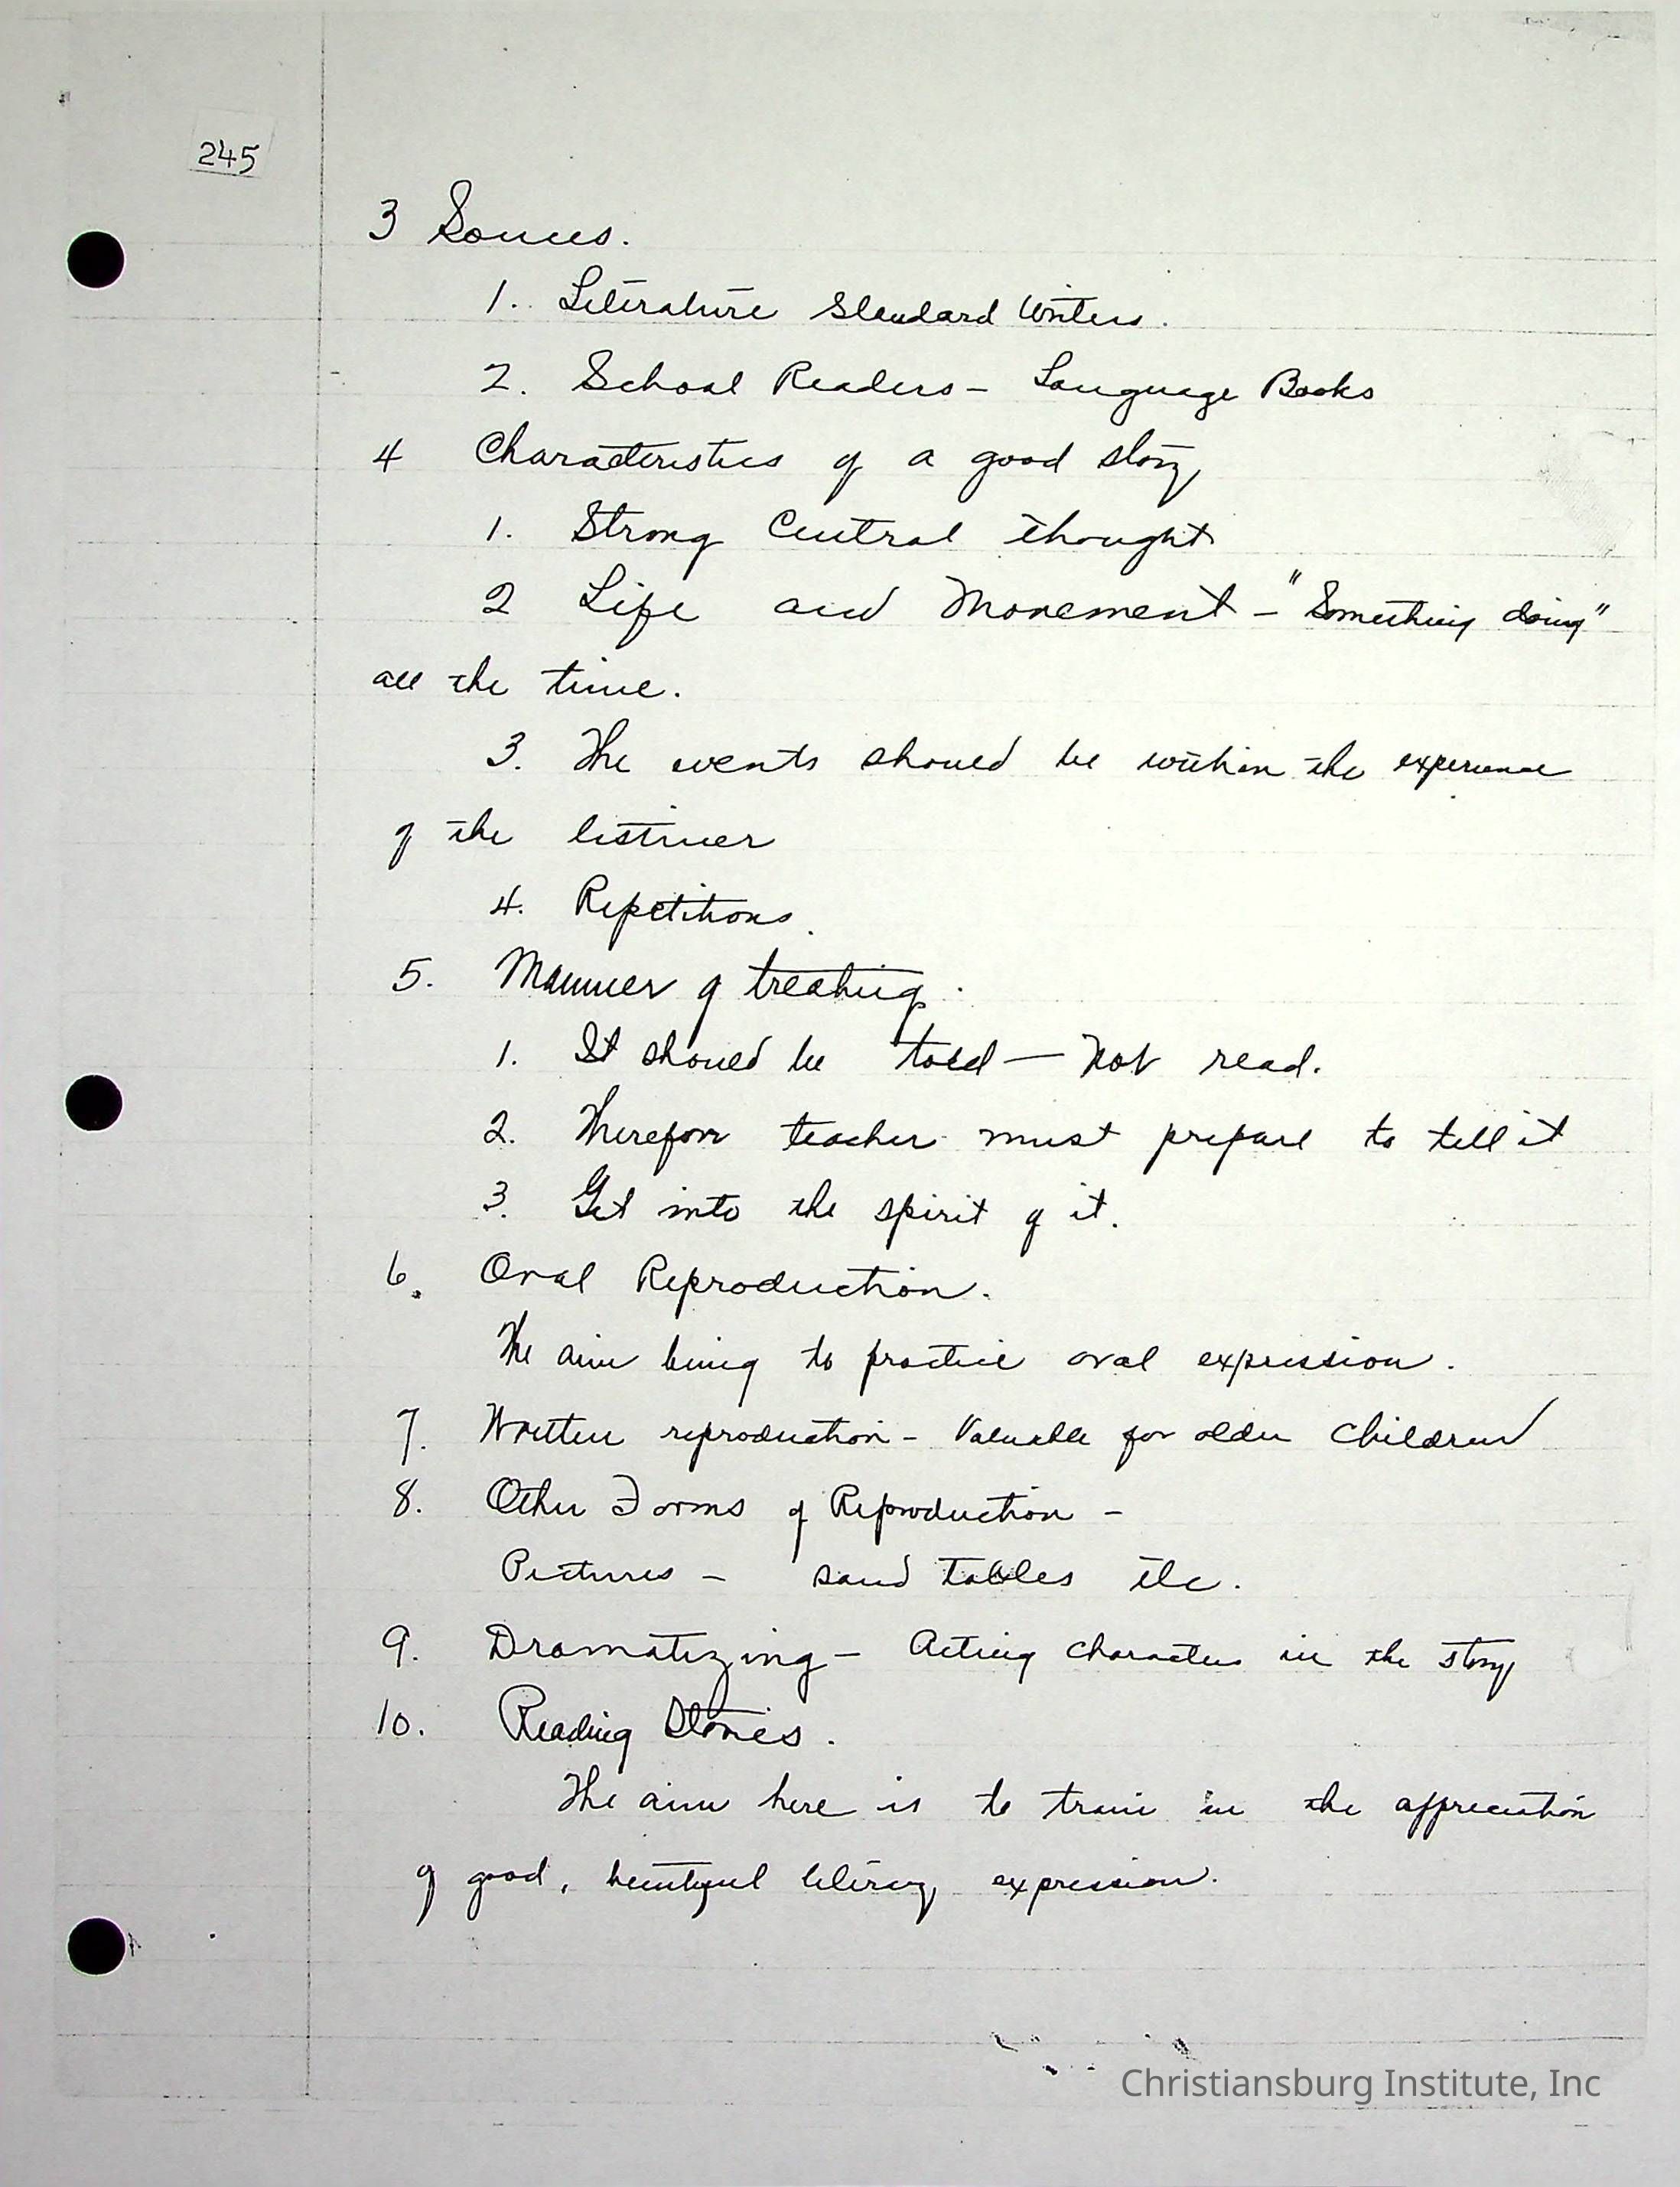 245
3 Sources.
1. Literature Standard Writers.
2. School Readers - Language Books
4 Characteristics of a good story
1. Strong Central thought
2 Life and Movement - "Something doing"
all the time.
3. The events should be within the experience
of the listener
4. Repetitions.
5. Manner of treating.
1. It should be told - Not read.
2. Therefore teacher must prepare to tell it
3. Get into the spirit of it.
6. Oral Reproduction.
The aim being to practice oral expression.
7. Written reproduction - Valuable for older children
8. Other Forms of Reproduction -
Pictures - sand tables etc.
9. Dramatizing - Acting characters in the story
10. Reading Stories.
The aim here is to train in the appreciation
of good, beautiful literary expression.
Christiansburg Institute, Inc